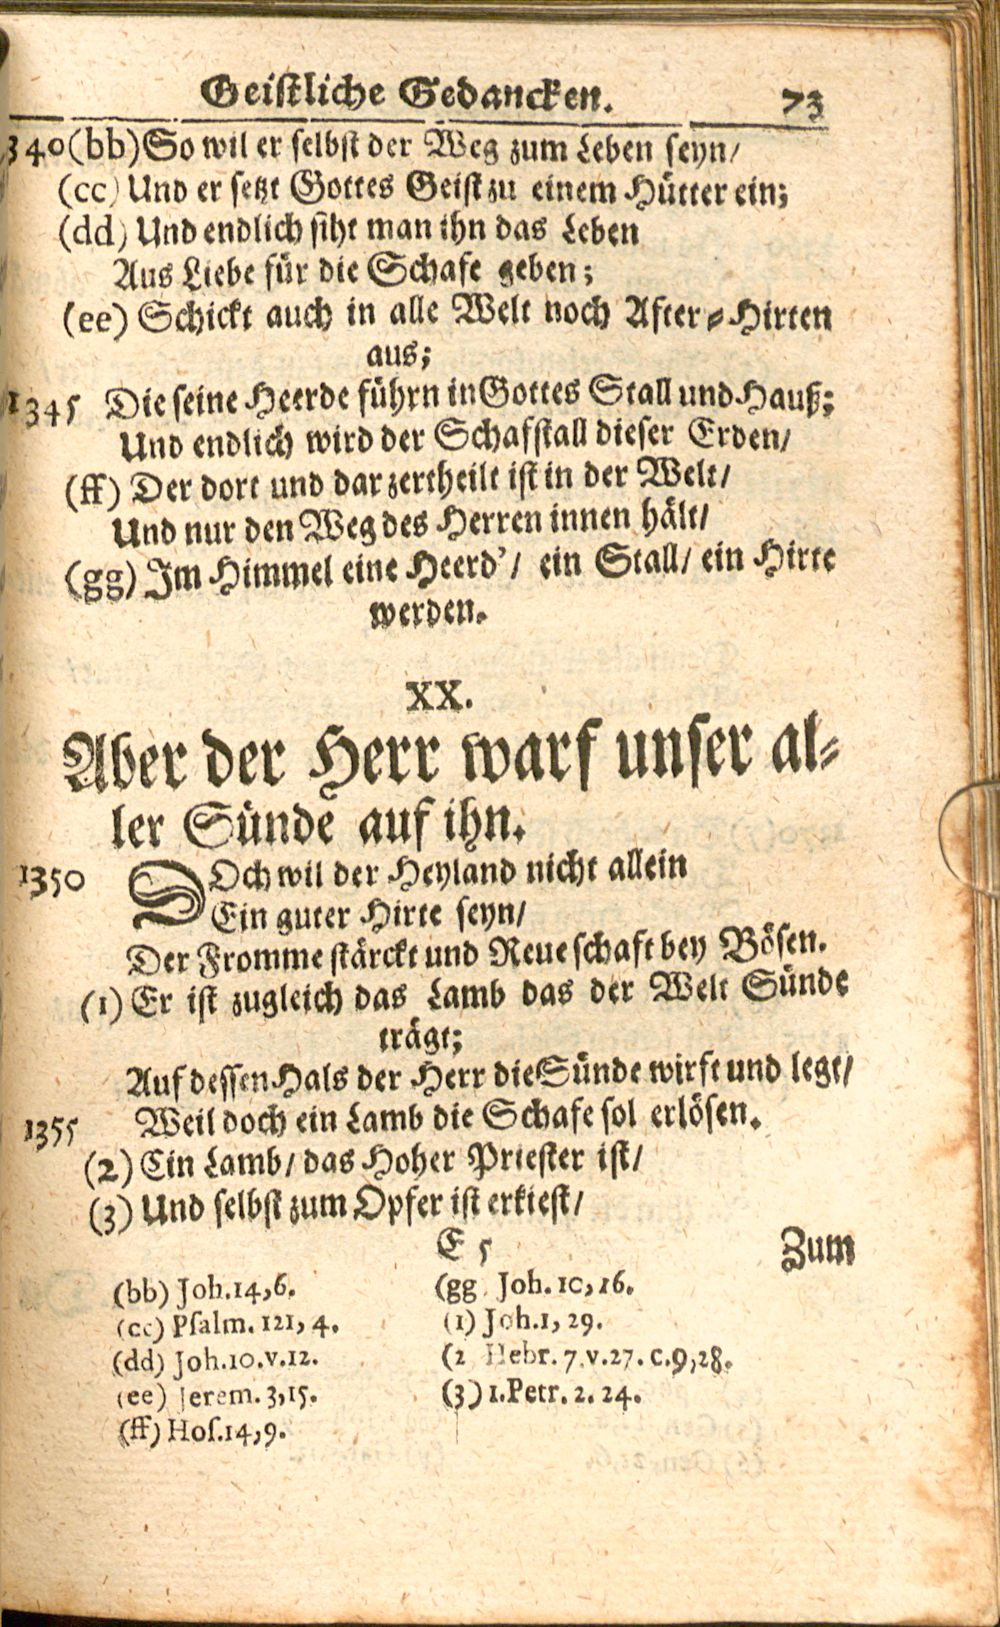 Geistliche Gedancken. 73
340 (bb) So wil er selbst der Weg zum Leben seyn/
(cc) Und er setzt Gottes Geist zu einem Hütter ein;
(dd) Und endlich siht man ihn das Leben
Aus Liebe für die Schafe geben;
(ee) Schickt auch in alle Welt noch After-Hirten
aus;
1345 Die seine Heerde führn in Gottes Stall und Hauß;
Und endlich wird der Schafstall dieser Erden/
(ff) Der dort und dar zertheilt ist in der Welt/
Und nur den Weg des Herren innen hält/
(gg) Im Himmel eine Heerd'/ ein Stall/ ein Hirte
werden.
XX.
Aber der Herr warf unser al-
ler Sünde auf ihn.
1350 DOch wil der Heyland nicht allein
Ein guter Hirte seyn/
Der Fromme stärckt und Reue schaft bey Bösen.
(1) Er ist zugleich das Lamb das der Welt Sünde
trägt;
Auf dessen Hals der Herr die Sünde wirft und legt/
1355 Weil doch ein Lamb die Schafe sol erlösen.
(2) Ein Lamb/ das Hoher Priester ist/
(3) Und selbst zum Opfer ist erkiest/
E 5 Zum
(bb) Joh. 14, 6.
(cc) Psalm. 121, 4.
(dd) Joh. 10. v. 12.
(ee) Jerem. 3, 15.
(ff) Hos. 14, 9.
(gg Joh. 10, 16.
(1) Joh. 1, 29.
(2 Hebr. 7. v. 27. c. 9, 28.
(3) 1. Petr. 2. 24.